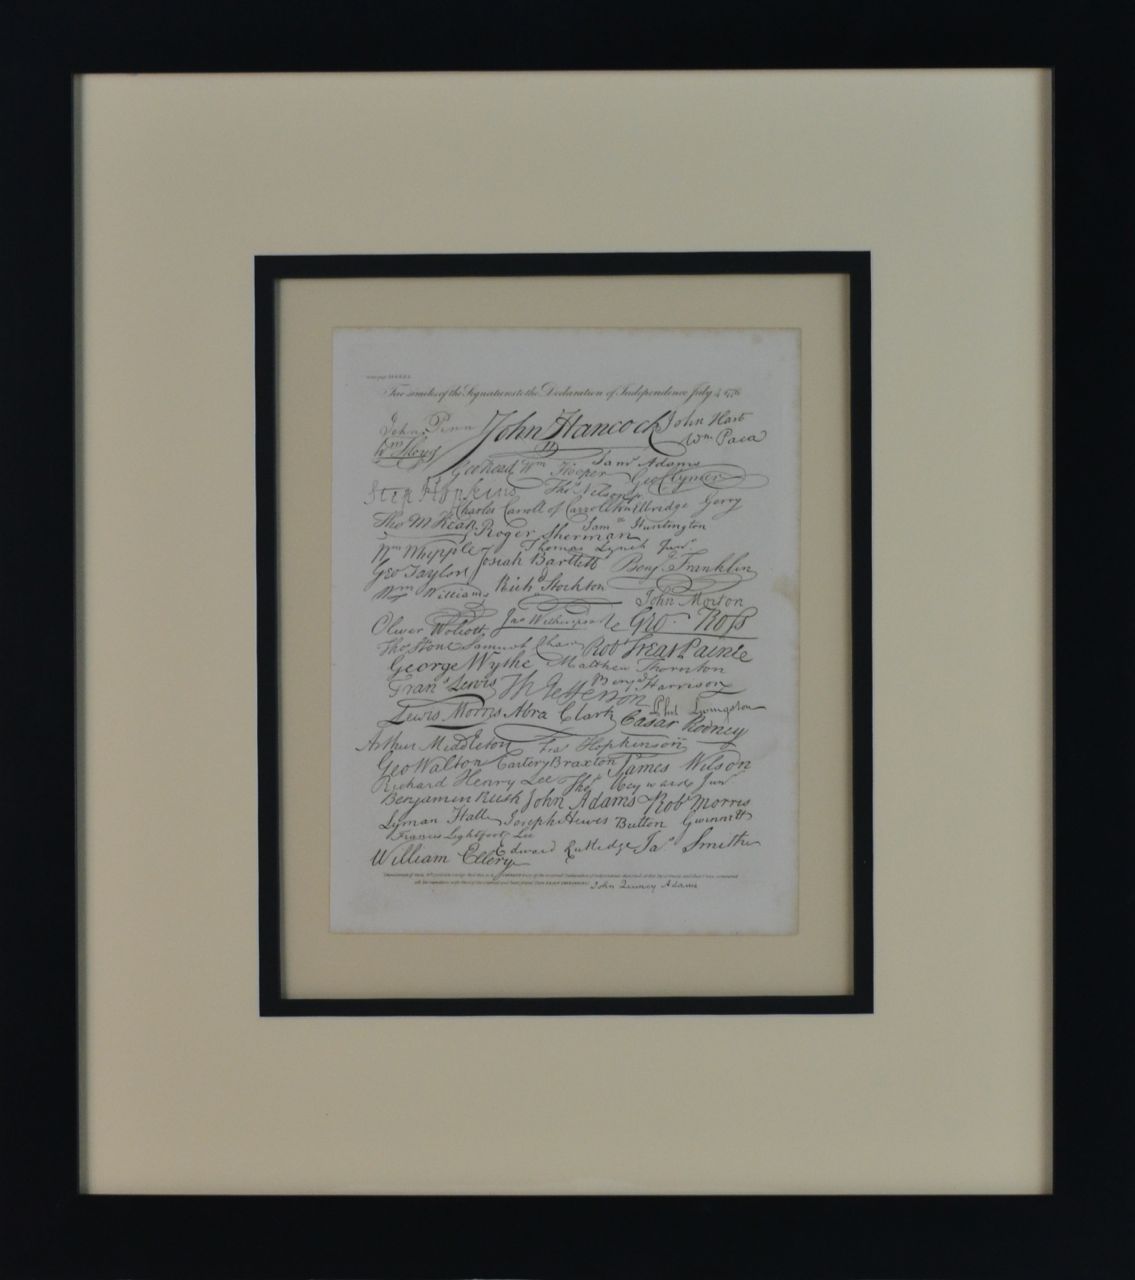 Fac similes of the Signatures to the Declaration of Independence July 4 1776
John Penn John Hancock John Hart
Wm Floyd Wm Paca
Geo Read Wm Hooper Saml Adams Geo Clymer
Step Hopkins Thos Nelson jr
Charles Carroll of Carrollton Elbridge Gerry
Tho M:Kean Roger Sherman Saml Huntington
Wm Whipple Thomas Lynch Junr
Geo Taylor Josiah Bartlett Benj Franklin
Wm Williams Richd Stockton John Morton
Oliver Wolcott Jno Witherspoon Geo. Ross
Thos Stone Samuel Chase Robt Treat Paine
George Wythe Matthew Thornton
Frans Lewis Th Jefferson Benj Harrison
Lewis Morris Abra Clark Phil. Livingston
Cæsar Rodney
Arthur Middleton Fras Hopkinson
Geo Walton Carter Braxton James Wilson
Richard Henry Lee Thos Heyward Junr
Benjamin Rush John Adams Robt Morris
Lyman Hall Joseph Hewes Button Gwinnett
Francis Lightfoot Lee
William Ellery Edward Rutledge Jas Smith
John Quincy Adams